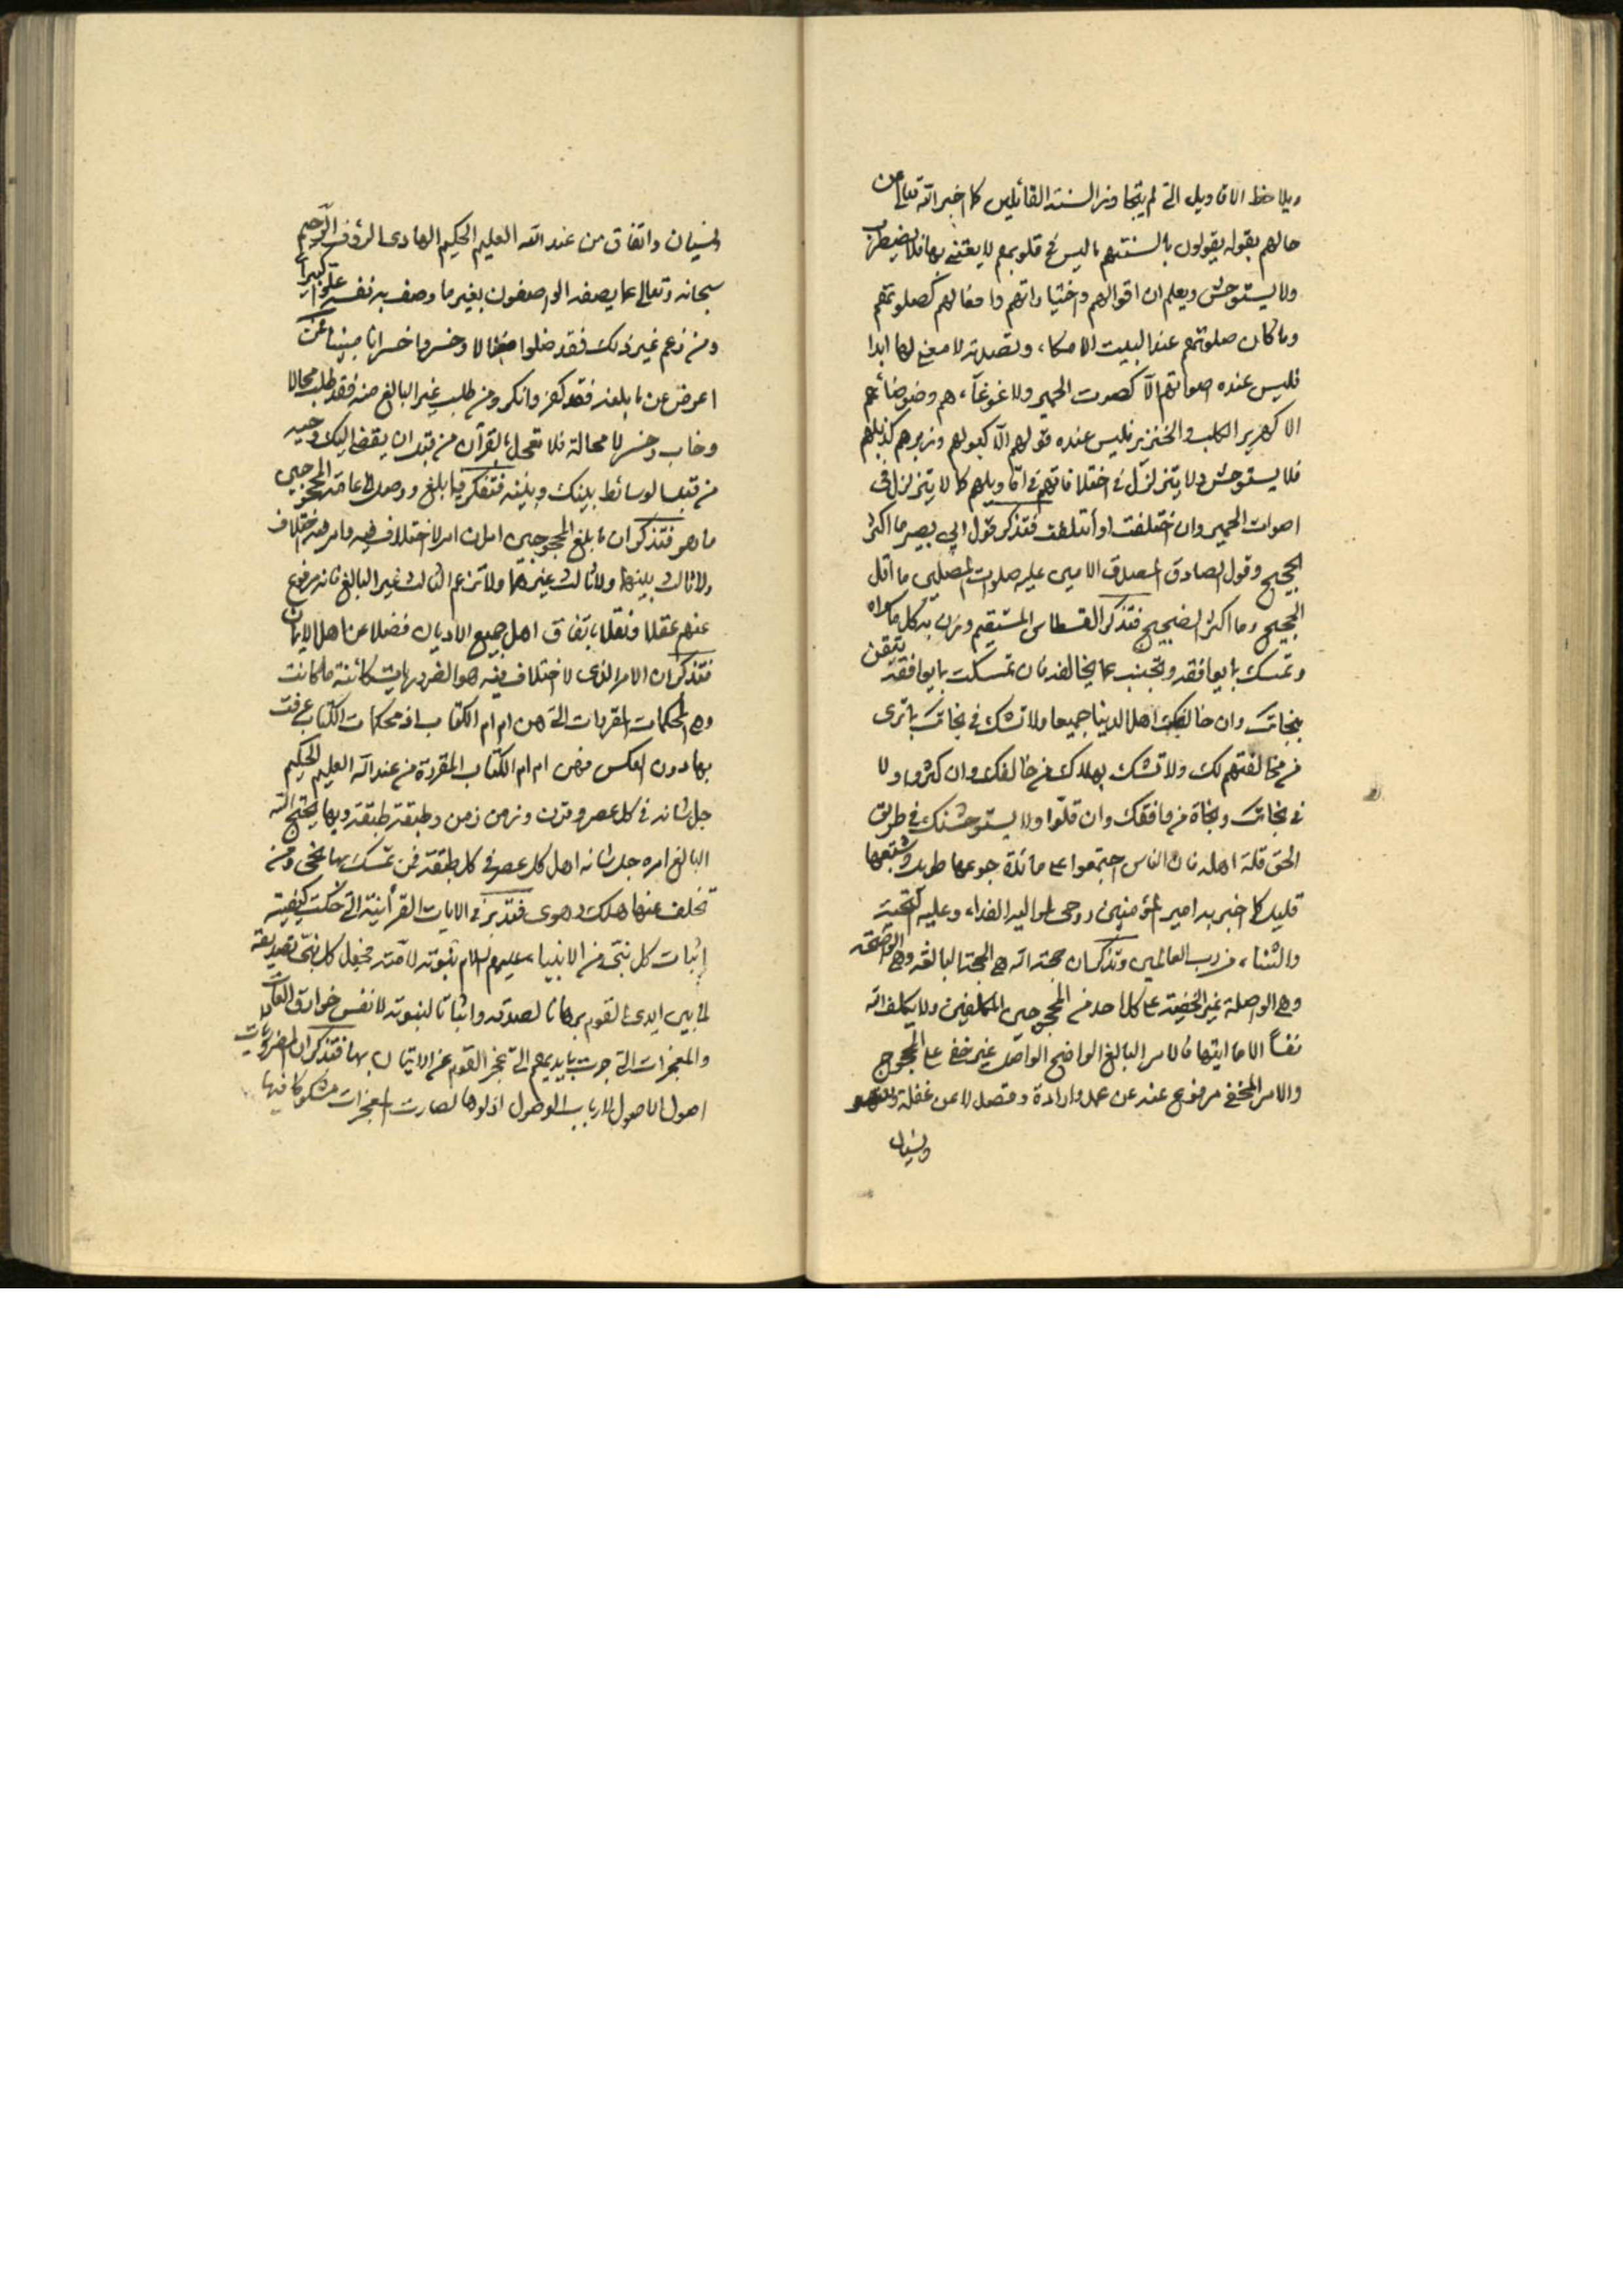 ويلاحظ الاقاويل التي لم يتجاوز السنة القائلين كما اخبر الله تعالى عن
حالهم بقوله يقولون بالسنتهم ما ليس في قلوبهم لا يعتني بها فلا يضطرب
ولا يستوحش ويعلم ان اقوالهم واختياراتهم وافعالهم كصلوتهم
وما كان صلوتهم عند البيت الا مكاء وتصدية لا معنى لها ابدا
فليس عنده اصواتهم الا كصوت الحمير ولا غوغاء هم وضوضائهم
الا كهرير الكلب والخنزير فليس عنده قولهم الا كبولهم وزبرهم كذبلهم
فلا يستوحش ولا يتزلزل في اختلافاتهم في اقاويلهم كما لا يتزلزل في
اصوات الحمير وان اختلفت او أتلفت فتذكر قول ابي بصير ما اكثر
الحجيج وقول الصادق المصدق الامين عليه صلوات المصلين ما اقل
الحجيج وما اكثر الضجيج فتذكر القسطاس المستقيم وزن به كل ما سواه
وتمسك بما يوافقه وتجتنب عما يخالفه فان تمسكت بما يوافقه تتيقن
بنجاتك وان خالفك اهل الدنيا جميعا ولا تشك في نجاتك بما ترى
من مخالفتهم لك ولا تشك بهلاك من خالفك وان كثروا ولا
في نجاتك ونجاة من وافقك وان قلّوا ولا يستوحشنك في طريق
الحق قلة اهله فان الناس اجتمعوا على مائدة جوعها طويل وشبعها
قليل كما اخبر به امير المؤمنين روحي لمواليه الفداء وعليه التحية
والثناء من رب العالمين وتذكر ان حجة الله هي الحجة البالغة وهي الواضحة
وهي الواصلة غير الخفية على كل احد من المحجوجين المكلفين ولا يكلف الله
نفساً الا ما اتيها فالامر البالغ الواضح الواصل غير خفي على المحجوج
والامر المخفي مرفوع عنه عن عمل وارادة وقصد لا عن غفلة وسهو
ونسيان
ونسيان واتفاق من عند الله العليم الحكيم الهادي الرؤف الرحيم
سبحانه وتعالى عما يصفه الواصفون بغير ما وصف به نفسه علوا كبيرا
ومن زعم غير ذلك فقد ضلوا ضلالا وخسروا خسرانا مبينا فمن
اعرض عن ما بلغه فقد كفر وانكر ومن طلب غير البالغ منه فقد طلب محالا
وخاب وخسر لا محالة فلا تعجل بالقرآن من قبل ان يقضى اليك وحيه
من قبل الوسائط بينك وبينه فتفكر فيما بلغ ووصل الى عامة المحجوجين
ما هو فتذكر ان ما بلغ المحجوجين امران امر لا اختلاف فيه وامر فيه اختلاف
ولا ثالث بينهما ولا ثالث غيرهما ولا تزعم الثالث غير البالغ فانه مرفوع
عنهم عقلا ونقلا باتفاق اهل جميع الاديان فضلا عن اهل الايمان
فتذكر ان الامر الذي لا اختلاف فيه هو الضروريات كائنة ما كانت
وهي المحكمات المقررات التي هن ام ام الكتاب اذ محكمات الكتاب عرفت
بها دون العكس فهن ام ام الكتاب المقررة من عند الله العليم الحكيم
جل شانه في كل عصر وقرن وزمن زمن وطبقة طبقة وبها يحتج الله
البالغ امره جل شانه اهل كل عصر في كل طبقة فمن تمسك بها نجى ومن
تخلف عنها هلك وهوى فتدبر في الايات القرآنية التي حكت كيفية
إثبات كل نبي من الانبياء عليهم السلام نبوته لامته فجعل كل نبي تصديقه
لما بين ايدي القوم برهانا لصدقه واثباتا لنبوته لا نفس خوارق العادات
والمعجزات التي جرت بايديهم التي تعجز القوم عن الاتيان بها فتذكر ان الضروريات
اصول الاصول لارباب الوصول اذ لولاها لصارت المعجزات مشكوكا فيها